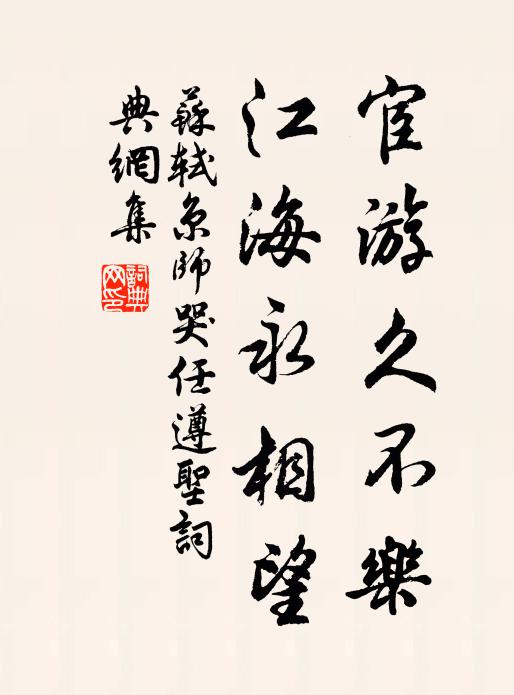 宦游久不樂
江海永相望
蘇軾京師哭任遵聖詞
典網集
詞典網印